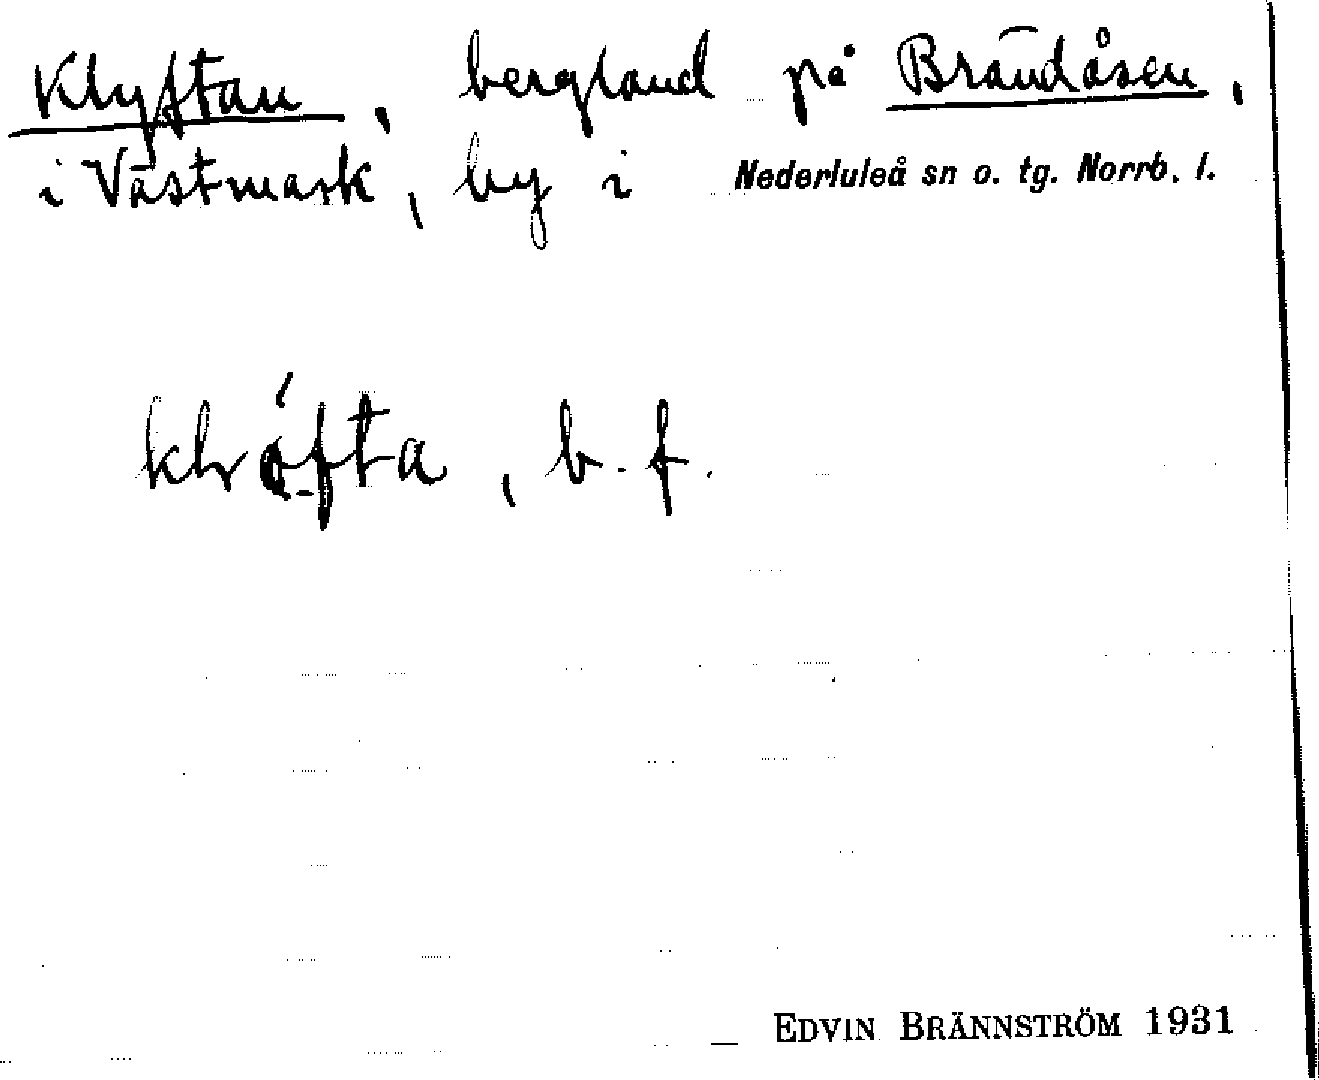 Klyftan, bergland på Brändåsen,
i Västmark, by i Nederluleå sn o. tg. Norrb. l.
, b. f.
EDVIN BRÄNNSTRÖM 1931